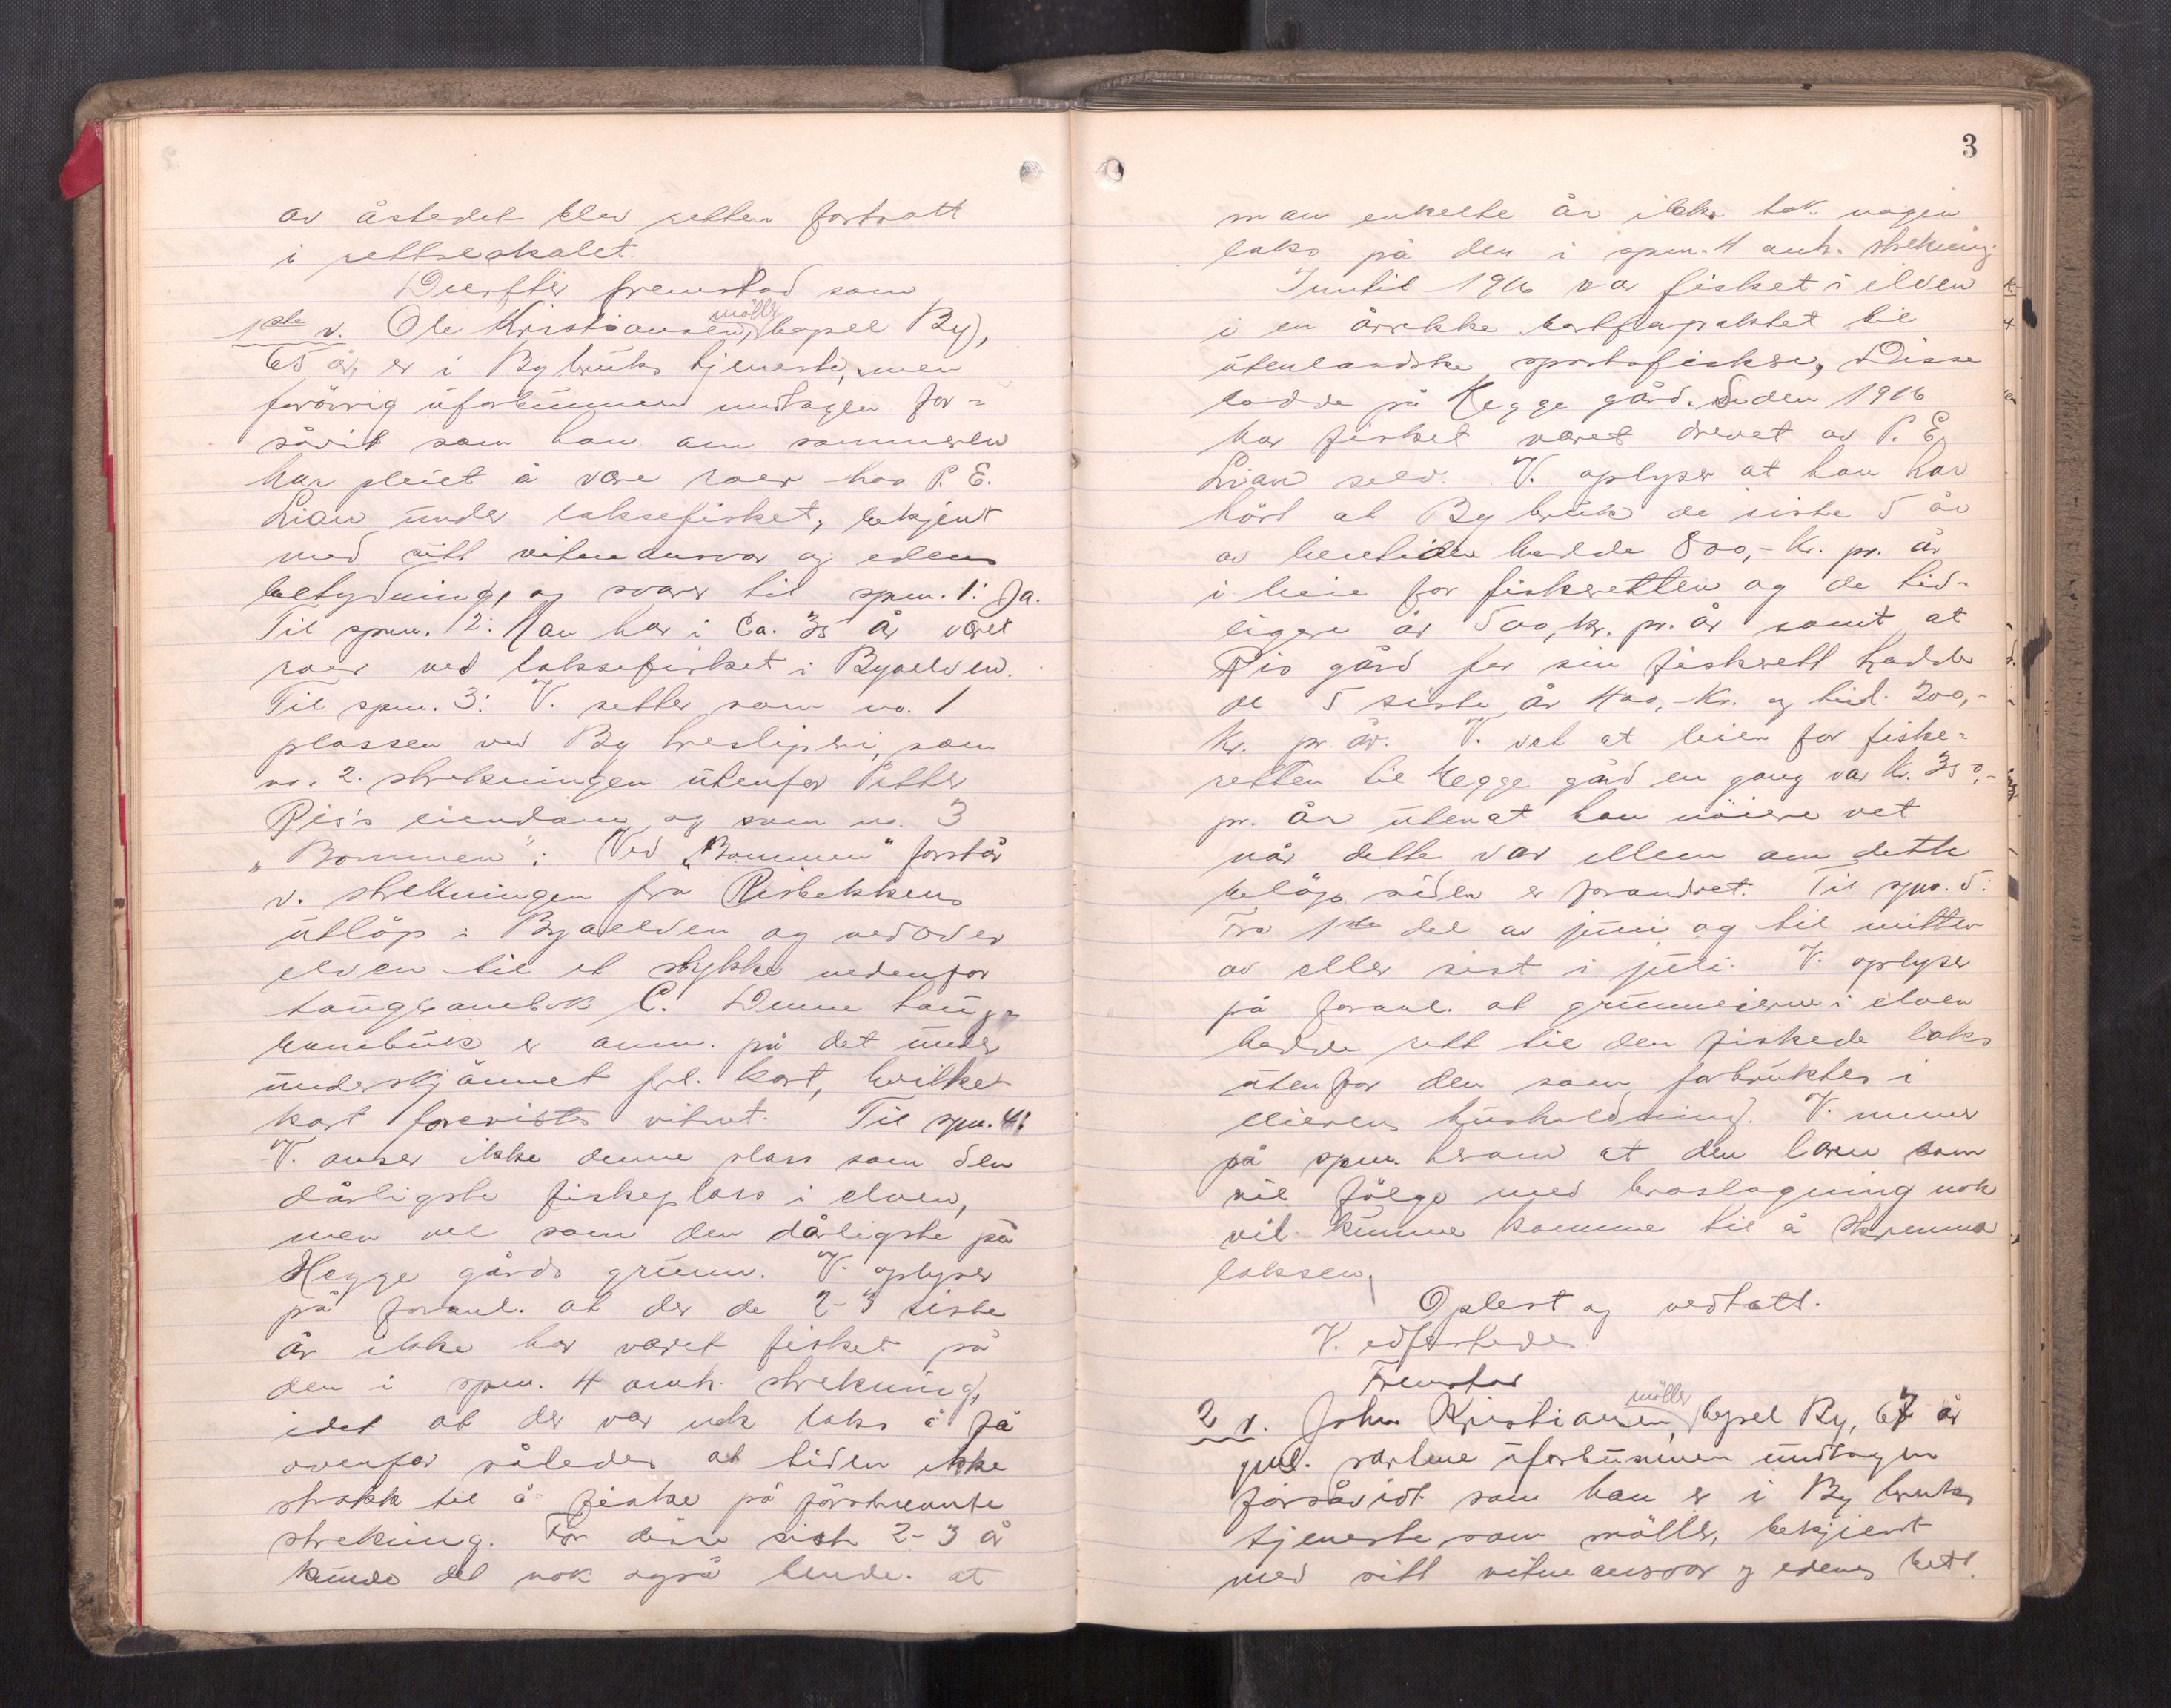 av åstedet blev retten fortsatt
i rettslokalet.
Derefter fremstod som
1ste v. Ole Kristiansen, möller, bopel By,
65 år, er i By bruks tjeneste, men
forövrig uforbunnen undtagen for-
såvit som han om sommeren
har pleiet å være roer hos P. E.
Lian under laksefisket, bekjent
med sitt vitneansvar og edens
betydning, og svarer til spm. 1: Ja.
Til spm. 2: Han har i ca. 35 år været
roer ved laksefisket i Byaelven.
Til spm. 3: V. setter som no. 1
plassen ved By tresliperi, som
no. 2. strekningen utenfor Petter
Ris's eiendom og som no. 3
"Bommen": Ved "Bommen" forstår
v. strekningen fra Risbekkens
utlöp i Byaelven og nedover
elven til et stykke nedenfor
C. Denne
er anm. på det under
underskjönnet frl. kart, hvilket
kart forevistes vitnet. Til spm. 4:
V. anser ikke denne plass som den
dårligste fiskeplass i elven,
men vel som den dårligste på
Hegge gårds grunn. V. oplyser
på foranl. at der de 2-3 siste
år ikke har været fisket på
den i spm. 4 omh. strekning,
idet at der var nok laks å få
ovenfor således at tiden ikke
strakk til å fiske på förstnevnte
strekning. För disse siste 2-3 år
kunde det nok også hende at
3
man enkelte år ikke tok nogen
laks på den i spm. 4 omh. strekning
Inntil 1916 var fisket i elven
i en årrekke bortforpaktet til
utenlandske sportsfiskere, Disse
bodde på Hegge gård. Siden 1916
har fisket været drevet av P. E.
Lian selv. V. oplyser at han har
hört at By bruk de siste 5 år
av leietiden hadde 800,- kr. pr. år
i leie for fiskeretten og de tid-
ligere år 500, kr. pr. år samt at
Ris gård for sin fiskerett hadde
de 5 siste år 400,- Kr. og tid. 200,-
Kr. pr. år. V. vet at leien for fiske-
retten til Hegge gård en gang var Kr. 350,-
pr. år utenat han nöiere vet
når dette var ellem om dette
belöp siden er forandret. Til spm. 5:
Fra 1ste del av juni og til mitten
av eller sist i juli. V. oplyser
på foranl. at grunneierne i elven
hadde rett til den fiskede laks
utenfor den som forbruktes i
leierens husholdning. V. mener
på spm. herom at den larm som
vil fölge med braslagning nok
vil kunne komme til å skremme
laksen.
Oplest og vedtatt.
V. edfestedes.
Fremstod
2 v. John Kristiansen, möller, bopel By, 67 år
gml. partene uforbunnen undtagen
forsåvidt som han er i By bruks
tjeneste som möller, bekjent
med sitt vitneansvar og edens bet.